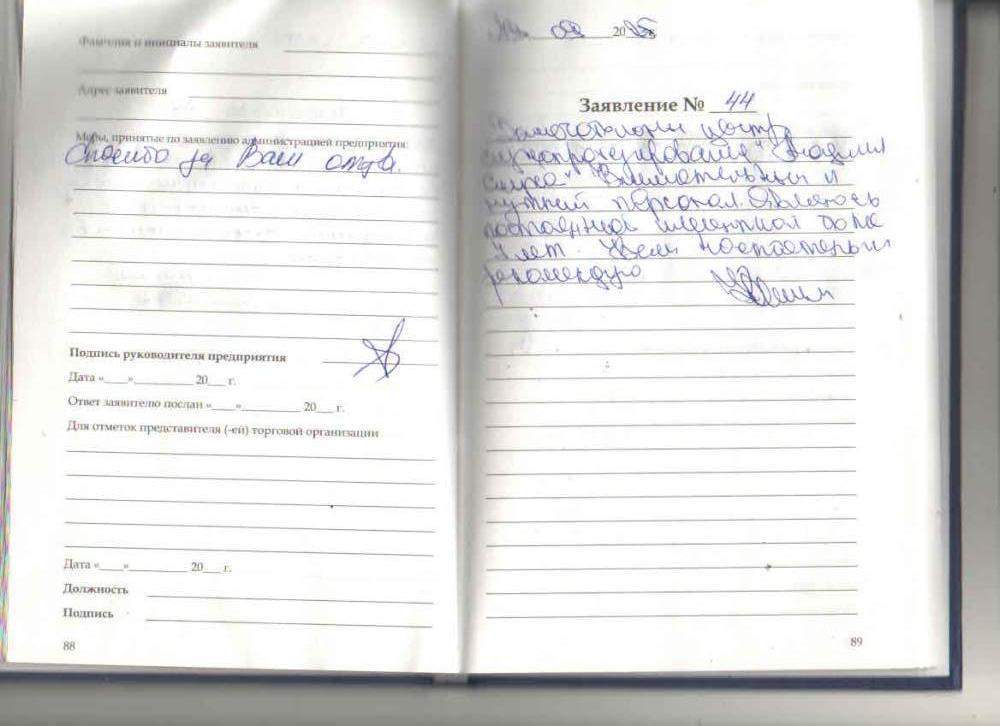 Фамилия и инициалы заявителя
Адрес заявителя
Меры, принятые по заявлению администрацией предприятия:
Спасибо за Ваш отзыв.
Подпись руководителя предприятия
Дата «___»__________ 20___ г.
Ответ заявителю послан «___»__________ 20___ г.
Для отметок представителя (-ей) торговой организации
Дата «___»__________ 20___ г.
Должность
Подпись
88
20
Заявление № 44
Замечательный центр
слухопротезирования "Академия
слуха" Внимательный и
чуткий персонал. Являюсь
постоянной клиенткой более
лет. Всем
рекомендую
89